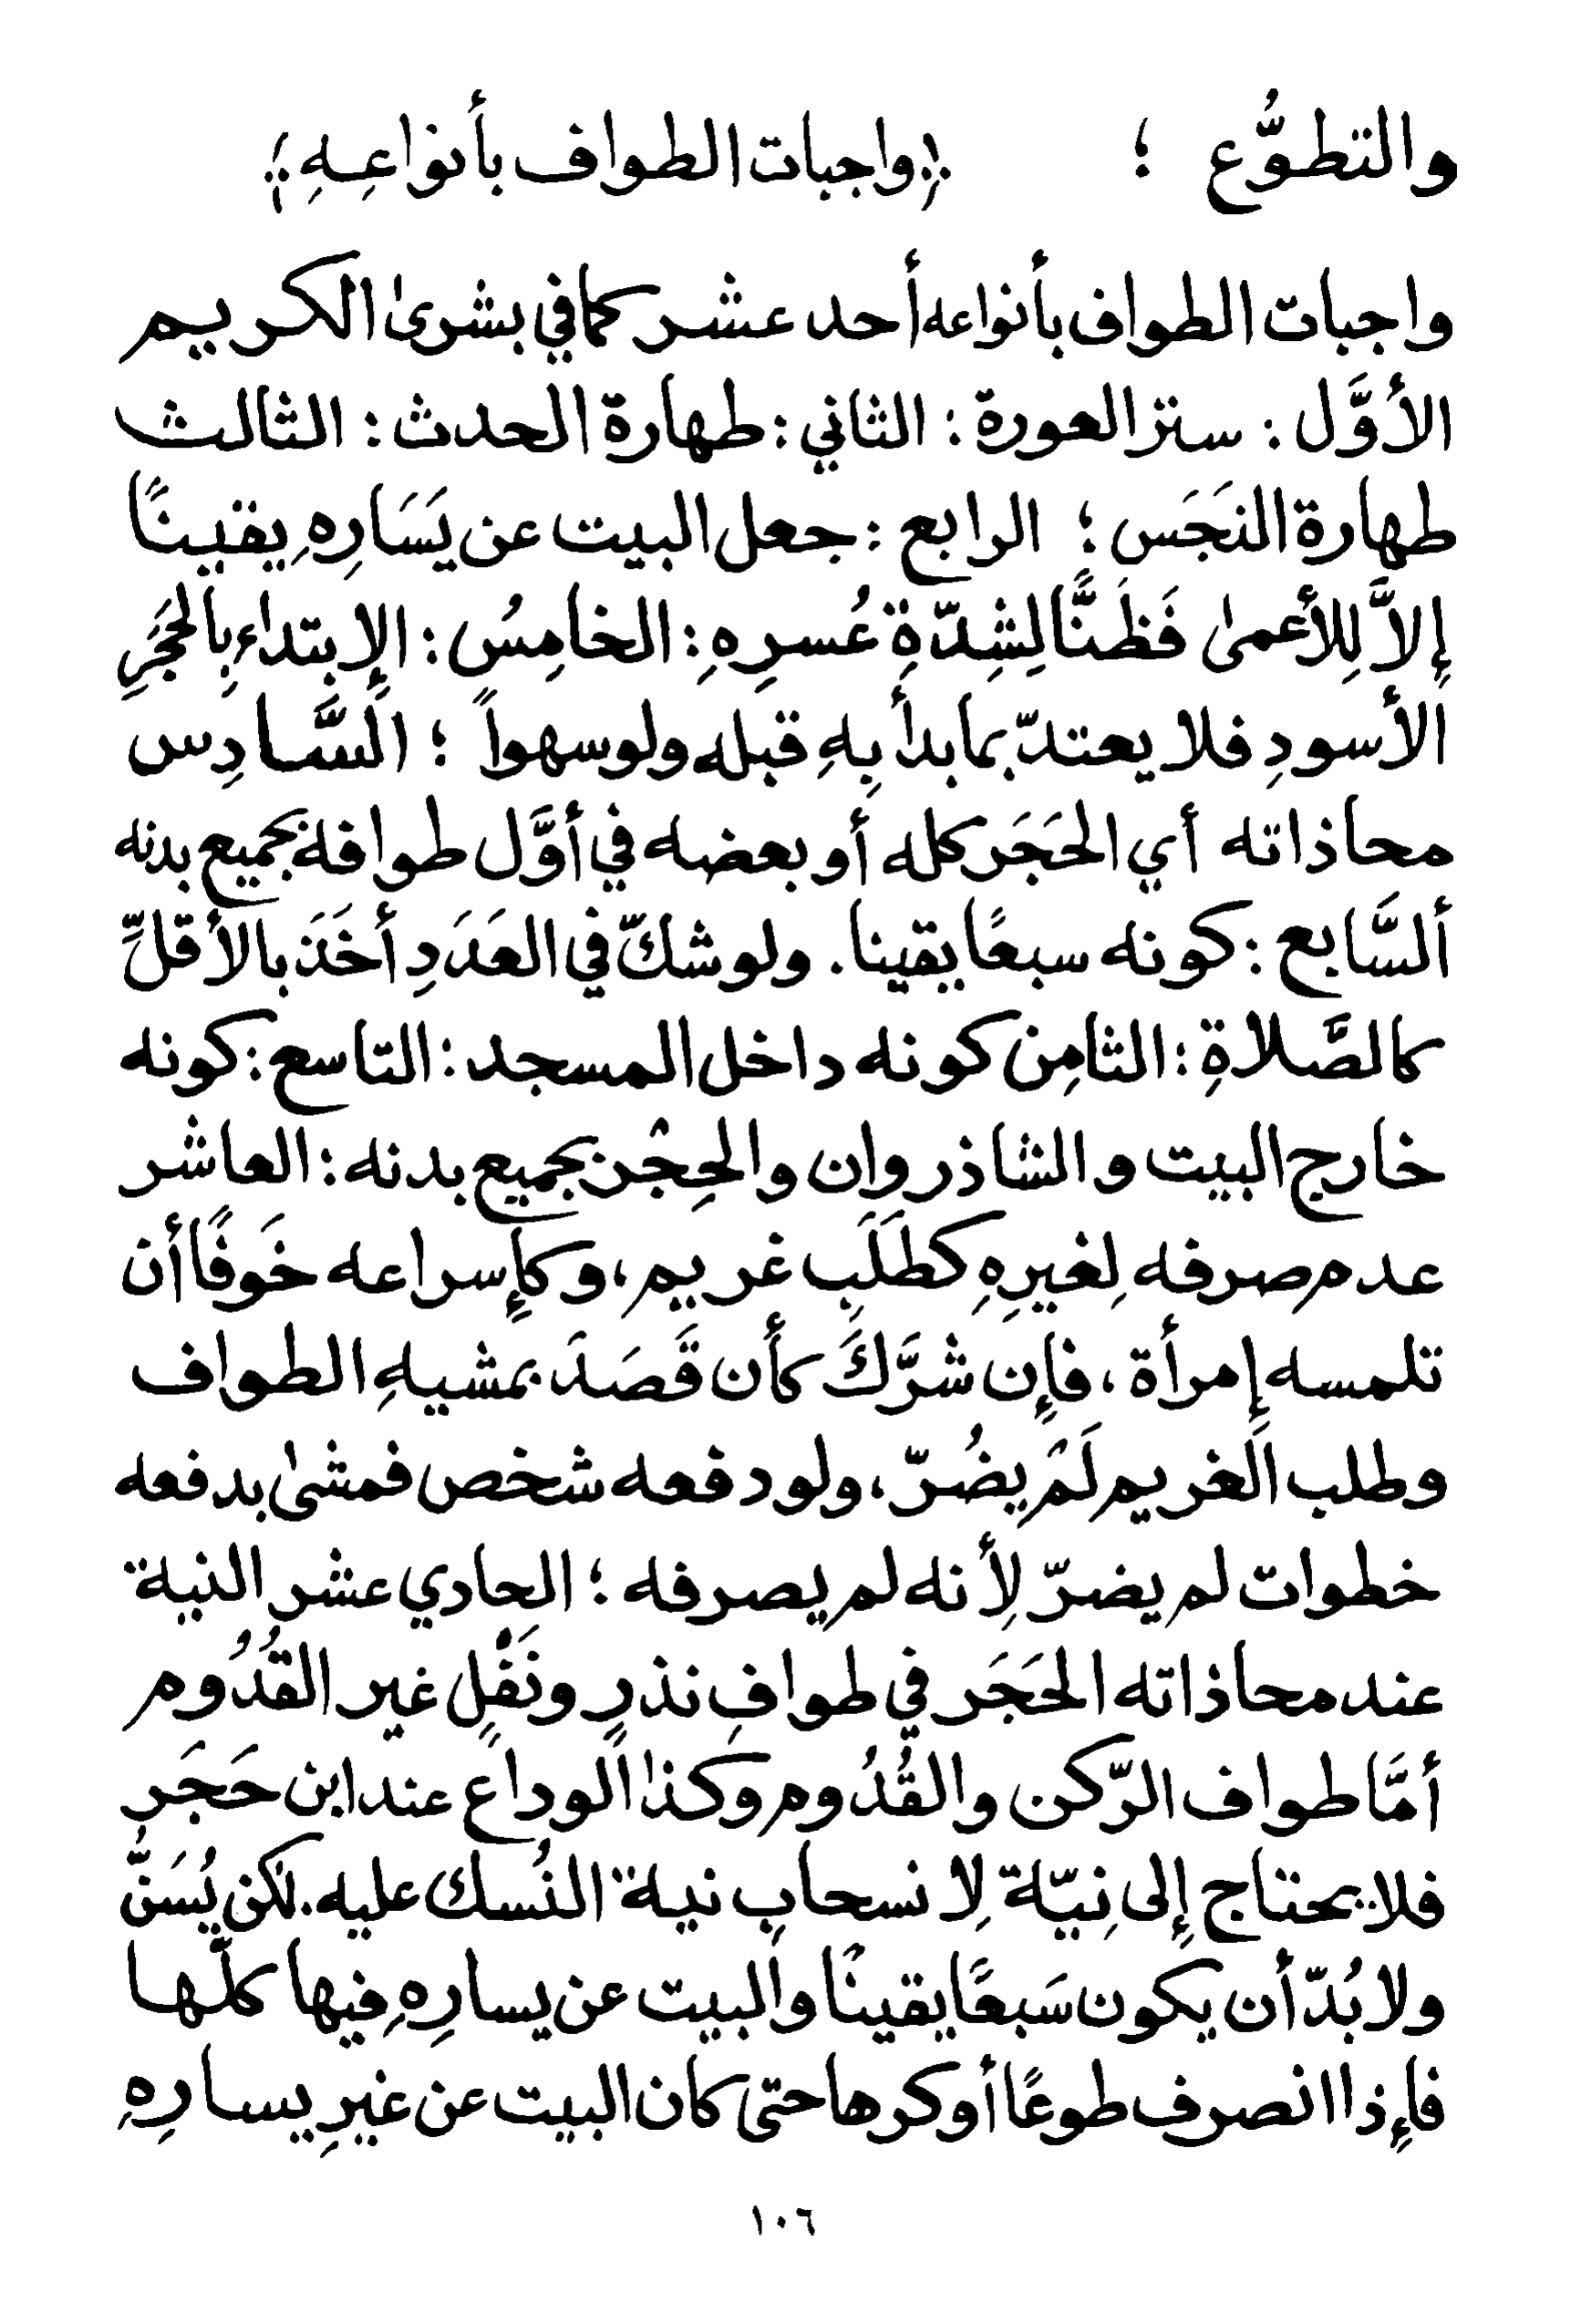 والتطوُّع ؛ ﴿واجبات الطواف بأنواعِهِ﴾
واجبات الطواف بأنواعه أحد عشر كما في بشرىٰ الكريم
الأوَّل : ستر العورة : الثاني : طهارة الحدث : الثالث
طهارة النَجَس ؛ الرابع : جعل البيت عن يَسَارِهِ يقينًا
إِلاَّ لِلأعمىٰ فَظَنًّا لِشِدّةِ عُسرِهِ : الخامِسُ : الإبتداء بِالحَجَرِ
الأسودِ فلا يعتدّ بما بدأ بِهِ قبله ولو سهواً ؛ السَّادِس
محاذاته أي الحَجَر كله أو بعضه في أوَّل طوافه بجميع بدنه
ألسَّابع : كونه سبعًا يقينا . ولو شكّ في العَدَدِ أخَذَ بالأقلِّ
كالصَّلاةِ : الثامِن كونه داخل المسجد : التاسع : كونه
خارج البيت والشاذروان والحِجْر بجميع بدنه : العاشر
عدم صرفه لِغيرِهِ كطَلَبِ غريم ، وكإسراعه خَوفًا أن
تلمسه إمرأة ، فإن شرَّكَ كأن قَصَدَ بمشيهِ الطواف
وطلب الغريم لَمْ يضُرّ ، ولو دفعه شخص فمشىٰ بدفعه
خطوات لم يضرّ لِأنه لم يصرفه ؛ الحادي عشر النية
عند محاذاته الحَجَر في طوافِ نذرٍ ونَفْلٍ غير القُدُوم
أمَّا طواف الرّكن والقُدُوم وكذا الوداع عند ابن حَجَرٍ
فلا يحتاج إلى نِيّة لِانسحابِ نية النُسك عليه . لكن يُسَنُّ
ولا بُدّ أن يكون سَبعًا يقينًا والبيت عن يسارِهِ فيها كلّها
فإذا انصرف طوعًا أو كرها حتى كان البيت عن غيرِ يسارِهِ
١٠٦